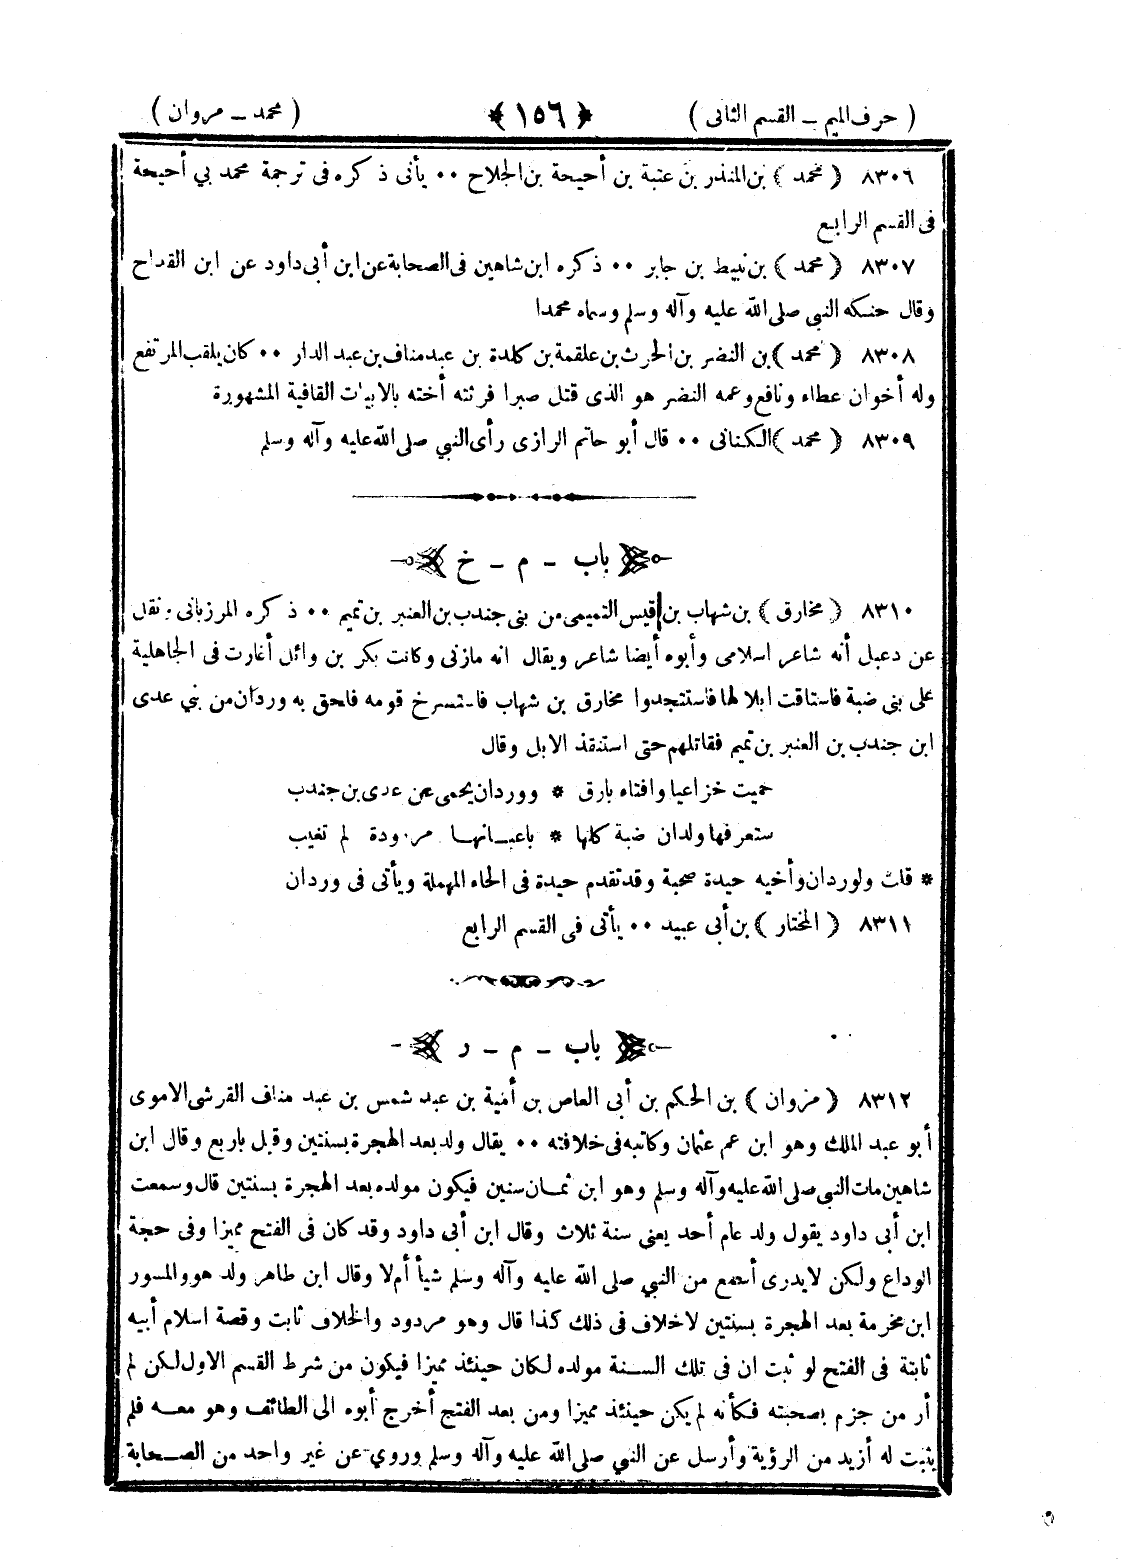 ( حرف الميم ـ القسم الثانى ) ﴿ ١٥٦ ﴾ ( محمد ـ مروان )
٨٣٠٦ ﴿ محمد ﴾ بن المنذر بن عتبة بن أحيحة بن الجلاح ٠٠ يأتى ذكره فى ترجمة محمد بي أحيحة
فى القسم الرابع
٨٣٠٧ ﴿ محمد ﴾ بن نبيط بن جابر ٠٠ ذكره ابن شاهين فى الصحابة عن ابن أبى داود عن ابن القداح
وقال حنكه النبي صلى الله عليه وآله وسلم وسماه محمدا
٨٣٠٨ ﴿ محمد ﴾ بن النضر بن الحرث بن علقمة بن كلدة بن عبد مناف بن عبد الدار ٠٠ كان يلقب المرتفع
وله أخوان عطاء ونافع وعمه النضر هو الذى قتل صبرا فرثته أخته بالابيات القافية المشهورة
٨٣٠٩ ﴿ محمد ﴾ الكنانى ٠٠ قال أبو حاتم الرازى رأى النبي صلى الله عليه وآله وسلم
باب ـ م ـ خ
٨٣١٠ ﴿ مخارق ﴾ بن شهاب بن قيس التميمى من بنى جندب بن العنبر بن تميم ٠٠ ذكره المرزبانى ونقل
عن دعبل أنه شاعر اسلامى وأبوه أيضا شاعر ويقال انه مازنى وكانت بكر بن وائل أغارت فى الجاهلية
على بنى ضبة فاستاقت ابلا لها فاستنجدوا مخارق بن شهاب فاستسرخ قومه فلحق به وردان من بني عدى
ابن جندب بن العنبر بن تميم فقاتلهم حتى استنقذ الابل وقال
حميت خزاعيا وافتاء بارق * ووردان يحمى عن عدى بن جندب
ستعرفها ولدان ضبة كلها * باعيـانهـا مردودة لم تغيب
* قلت ولوردان وأخيه حيدة صحبة وقد تقدم حيدة فى الحاء المهملة ويأتى فى وردان
٨٣١١ ﴿ المختار ﴾ بن أبى عبيد ٠٠ يأتى فى القسم الرابع
باب ـ م ـ ر
٨٣١٢ ﴿ مروان ﴾ بن الحكم بن أبي العاص بن أمية بن عبد شمس بن عبد مناف القرشى الاموى
أبو عبد الملك وهو ابن عم عثمان وكاتبه فى خلافته ٠٠ يقال ولد بعد الهجرة بسنتين وقيل باربع وقال ابن
شاهين مات النبي صلى الله عليه وآله وسلم وهو ابن ثمان سنين فيكون مولده بعد الهجرة بسنتين قال وسمعت
ابن أبى داود يقول ولد عام أحد يعنى سنة ثلاث وقال ابن أبى داود وقد كان فى الفتح مميزا وفى حجة
الوداع ولكن لا يدرى أسمع من النبي صلى الله عليه وآله وسلم شيأ أم لا وقال ابن طاهر ولد هو والمسور
ابن مخرمة بعد الهجرة بسنتين لاخلاف فى ذلك كذا قال وهو مردود والخلاف ثابت وقصة اسلام أبيه
ثابتة فى الفتح لو ثبت ان فى تلك السنة مولده لكان حينئذ مميزا فيكون من شرط القسم الاول لكن لم
أر من جزم بصحبته فكأنه لم يكن حينئذ مميزا ومن بعد الفتح أخرج أبوه الى الطائف وهو معه فلم
يثبت له أزيد من الرؤية وأرسل عن النبي صلى الله عليه وآله وسلم وروي عن غير واحد من الصحابة